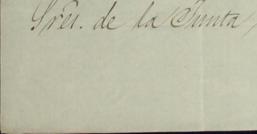 Sres. de la Junta